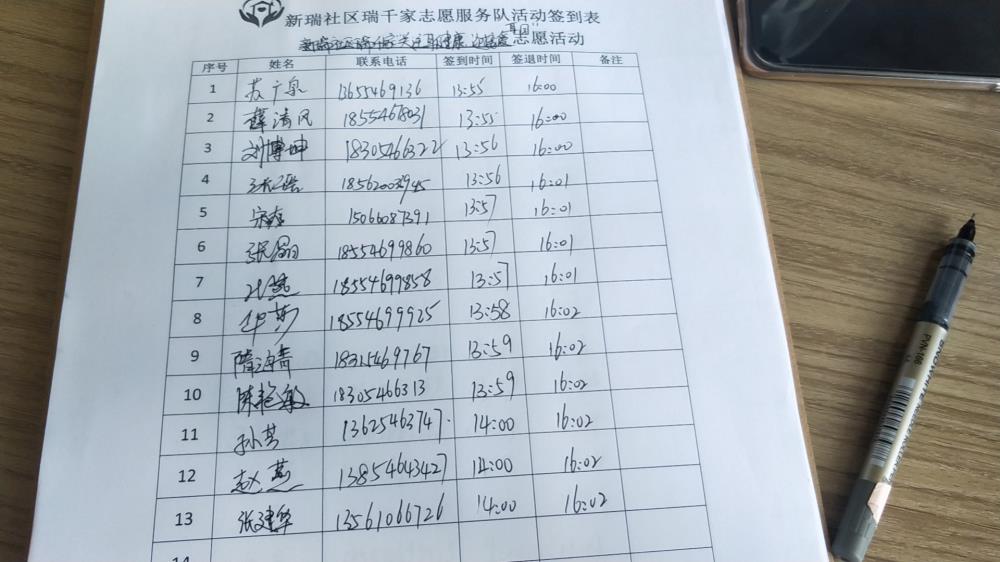 新瑞社区瑞千家志愿服务队活动签到表
志愿活动
序号 姓名 联系电话 签到时间 签退时间 备注
1 苏广泉 13655469136 13:55 16:00
2 薛清风 18554678031 13:55 16:00
3 刘博坤 18305466322 13:56 16:00
4 18562003945 13:56 16:01
5 15066087391 13:57 16:01
6 18554699860 13:57 16:01
7 18554699858 13:57 16:01
8 华莎 18554699925 13:58 16:02
9 隋海青 18315469767 13:59 16:02
10 陈艳敏 18305466313 13:59 16:02
11 孙芳 13625463747 14:00 16:02
12 赵燕 13854643427 14:00 16:02
13 张建华 13561066726 14:00 16:02
14
PVN-166